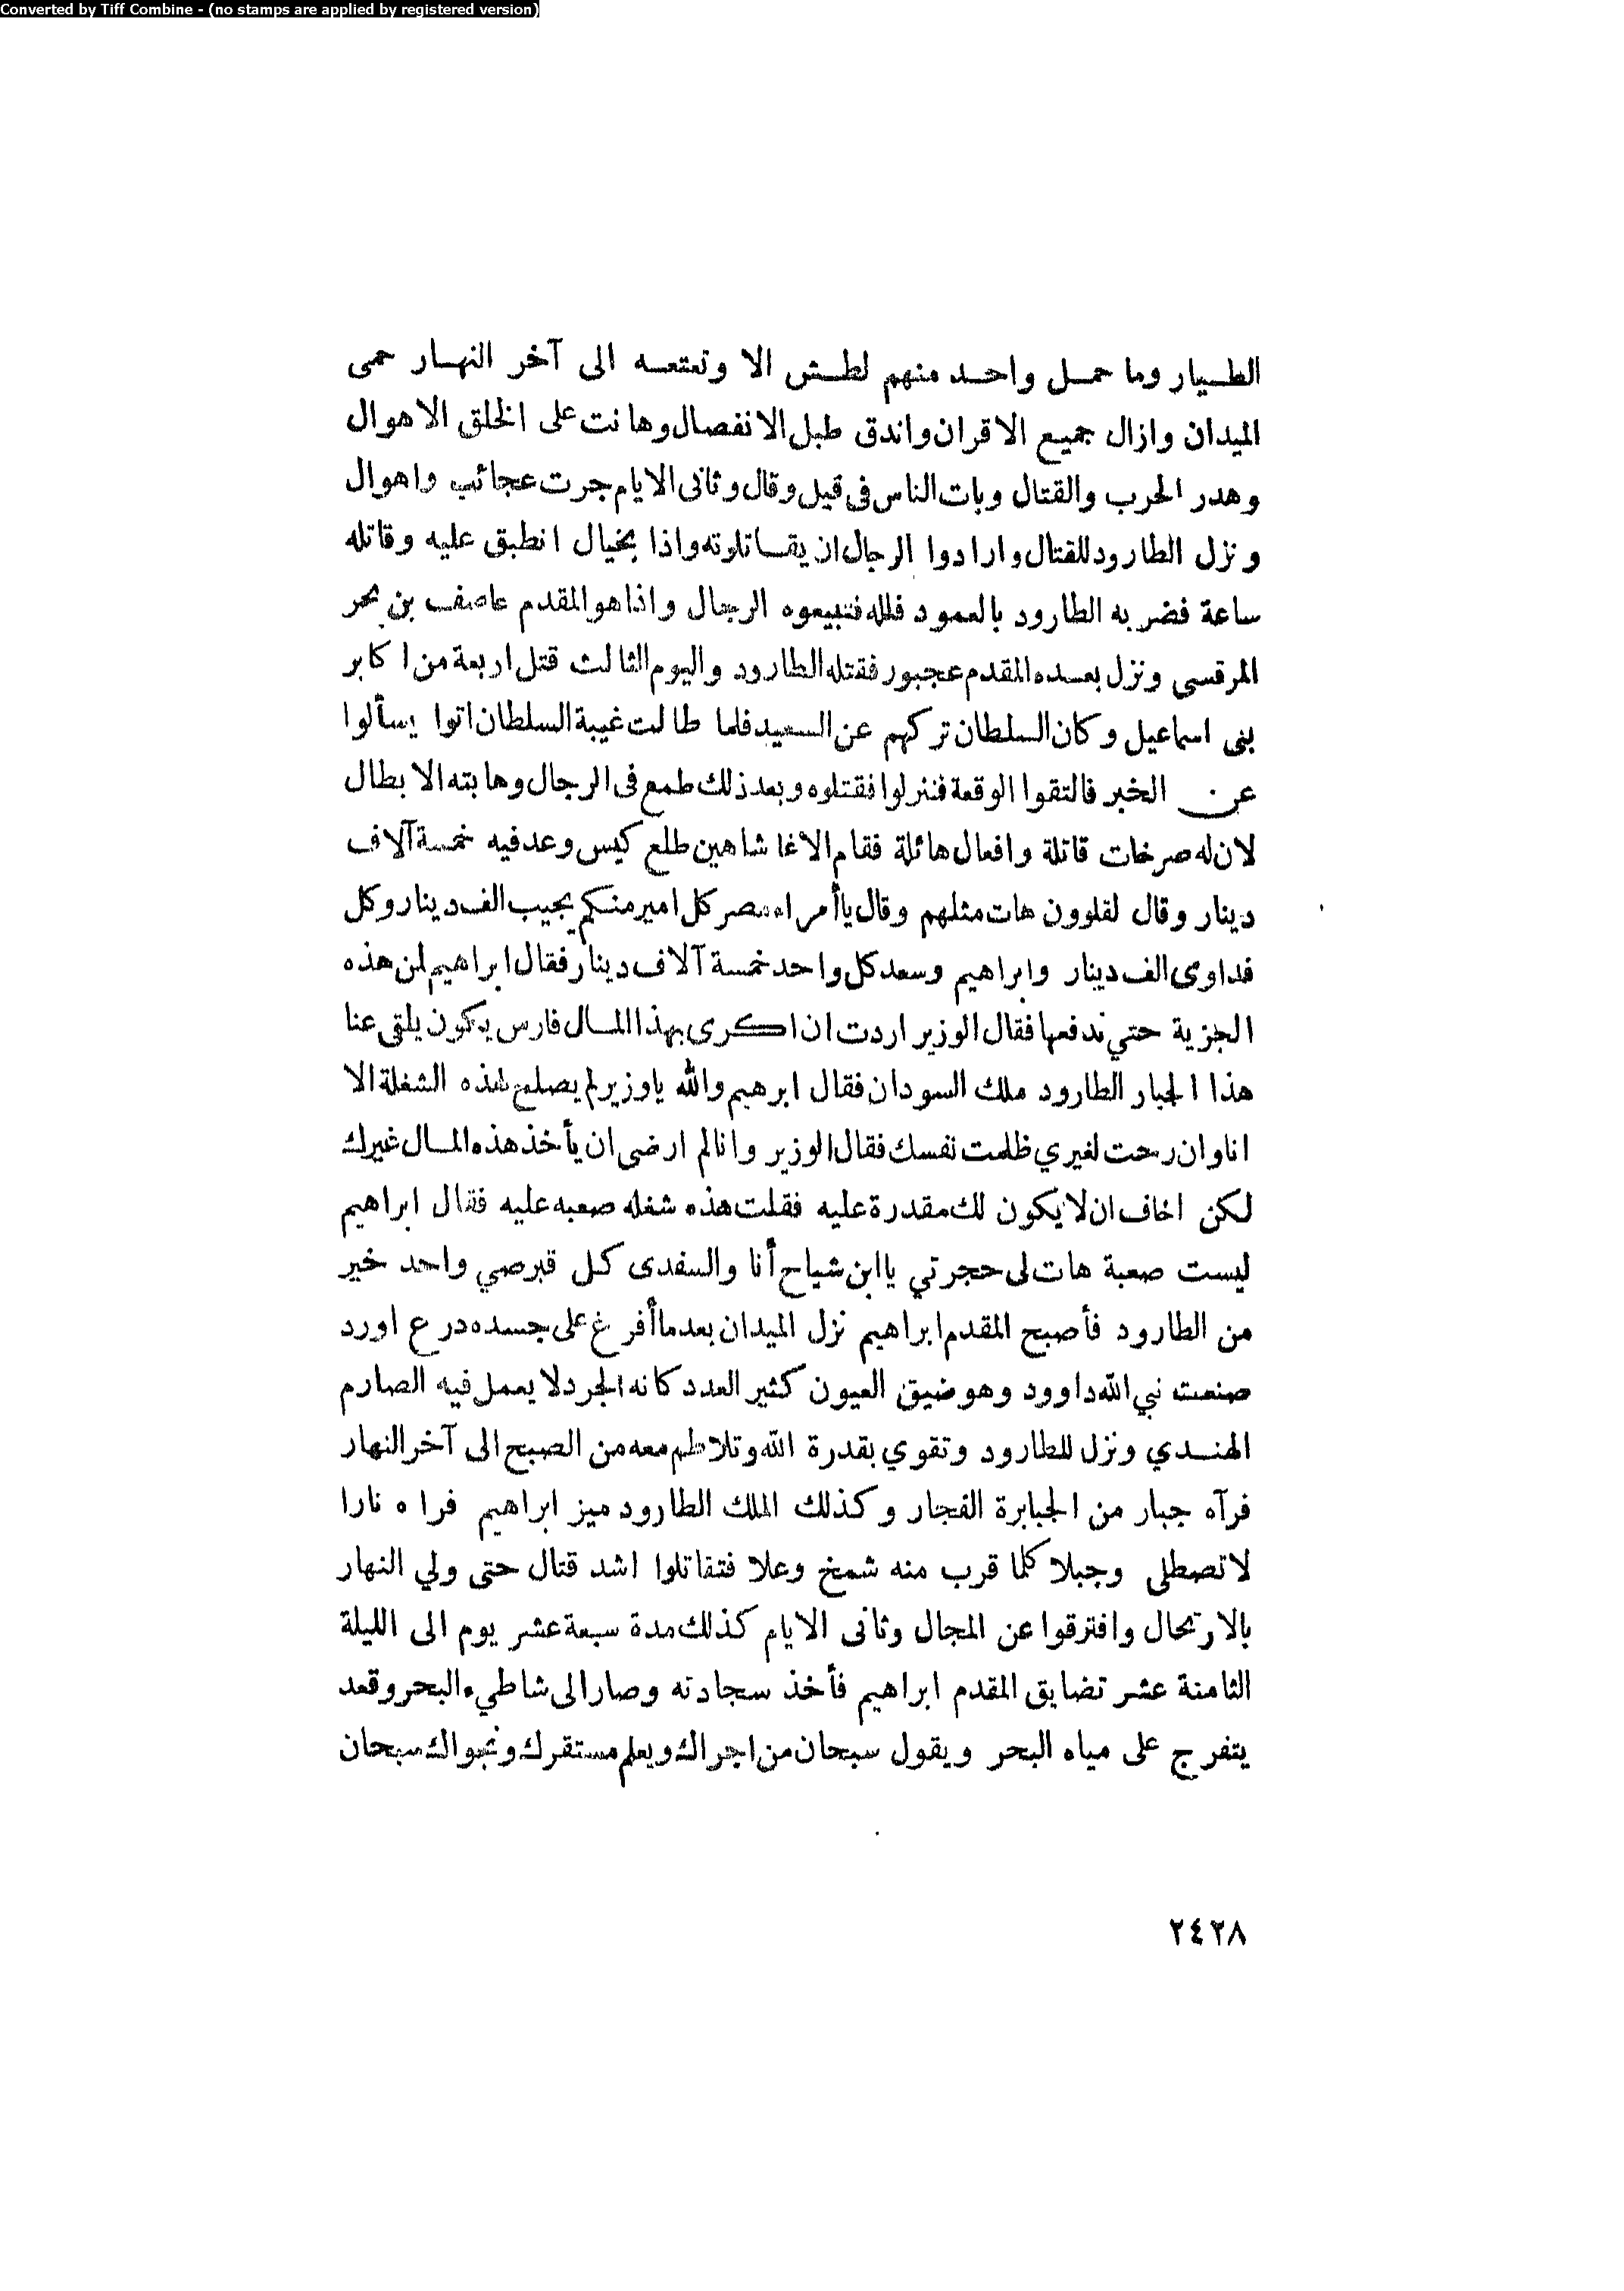 Converted by Tiff Combine - (no stamps are applied by registered version)
الطيار وما حمل واحد منهم لطش الا وتعتعه الى آخر النهار حمى
الميدان وازال جميع الاقران واندق طبل الانفصال وهانت على الخلق الاهوال
وهدر الحرب والقتال وبات الناس فى قيل وقال وثانى الايام جرت عجائب واهوال
ونزل الطارود للقتال وارادوا الرجال ان يقاتلوته واذا بخيال انطبق عليه وقاتله
ساعة فضربه الطارود بالعمود فلله فتبيعوه الرجال واذا هو المقدم عاصف بن بحر
المرقسى ونزل بعده المقدم عجبور فقتله الطارود واليوم الثالث قتل اربعة من اكابر
بنى اسماعيل وكان السلطان تركهم عن السعيد فلما طالت غيبة السلطان اتوا يسألوا
عن الخبر فالتقوا الوقعة فنزلوا فقتلوه وبعد ذلك طمع فى الرجال وهابته الابطال
لان له صرخات قاتلة وافعال هائلة فقام الاغا شاهين طلع كيس وعد فيه خمسة آلاف
دينار وقال لقلوون هات مثلهم وقال ياأمراء مصر كل امير منكم يجيب الف دينار وكل
فداوى الف دينار وابراهيم وسعد كل واحد خمسة آلاف دينار فقال ابراهيم لمن هذه
الجزية حتي ندفعها فقال الوزير اردت ان اكرى بهذا المال فارس يكون يلتقى عنا
هذا الجبار الطارود ملك السودان فقال ابرهيم والله ياوزير لم يصلح لهذه الشغلة الا
انا وان رحت لغيري ظلمت نفسك فقال الوزير وانا لم ارضى ان يأخذ هذه المال غيرك
لكن اخاف ان لا يكون لك مقدرة عليه فقلت هذه شغله صعبه عليه فقال ابراهيم
ليست صعبة هات لى حجرتي ياابن شياح أنا والسفدى كل قبرصي واحد خير
من الطارود فأصبح المقدم ابراهيم نزل الميدان بعد ما أفرغ على جسده درع اورد
صنعت نبي الله داوود وهو ضيق العيون كثير العدد كانه الجرد لا يعمل فيه الصارم
الهندي ونزل للطارود وتقوي بقدرة الله وتلاطم معه من الصبح الى آخر النهار
فرآه جبار من الجبابرة الفجار وكذلك الملك الطارود ميز ابراهيم فراه نارا
لا تصطلى وجبلا كلما قرب منه شمخ وعلا فتقاتلوا اشد قتال حتى ولي النهار
بالارتحال وافترقوا عن المجال وثانى الايام كذلك مدة سبعة عشر يوم الى الليلة
الثامنة عشر تضايق المقدم ابراهيم فأخذ سجادته وصار الى شاطيء البحر وقعد
يتفرج على مياه البحر ويقول سبحان من اجراك ويعلم مستقرك ونجواك سبحان
٢٤٢٨